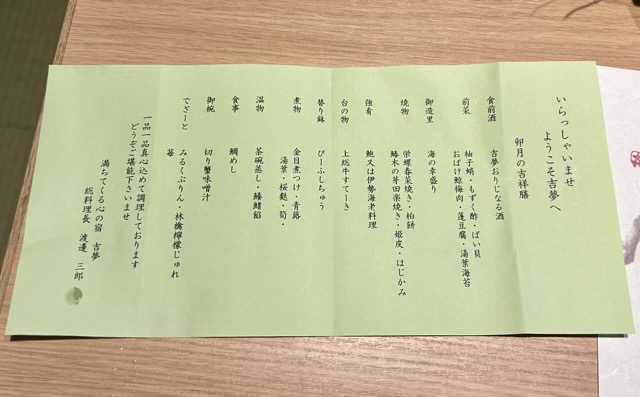 いらっしゃいませ
ようこそ吉夢へ
卯月の吉祥膳
食前酒　吉夢おりじなる酒
前菜　柚子絹・もずく酢・ばい貝
おばけ鯨梅肉・蓬豆腐・湯葉海苔
御造里　海の幸盛り
焼物　栄螺春菜焼き・柏餅
鰆木の芽田楽焼き・姫皮・はじかみ
強肴　鮑又は伊勢海老料理
台の物　上総牛すてーき
替り鉢　びーふしちゅう
煮物　金目煮つけ・青露
湯葉・桜麩・筍・
温物　茶碗蒸し・鱶鰭餡
食事　鯛めし
御椀　切り蟹味噌汁
でざーと　みるくぷりん・林檎檸檬じゅれ
苺
一品一品真心込めて調理しております
どうぞご堪能下さいませ
満ちてくる心の宿　吉夢
総料理長　渡邊　三郎